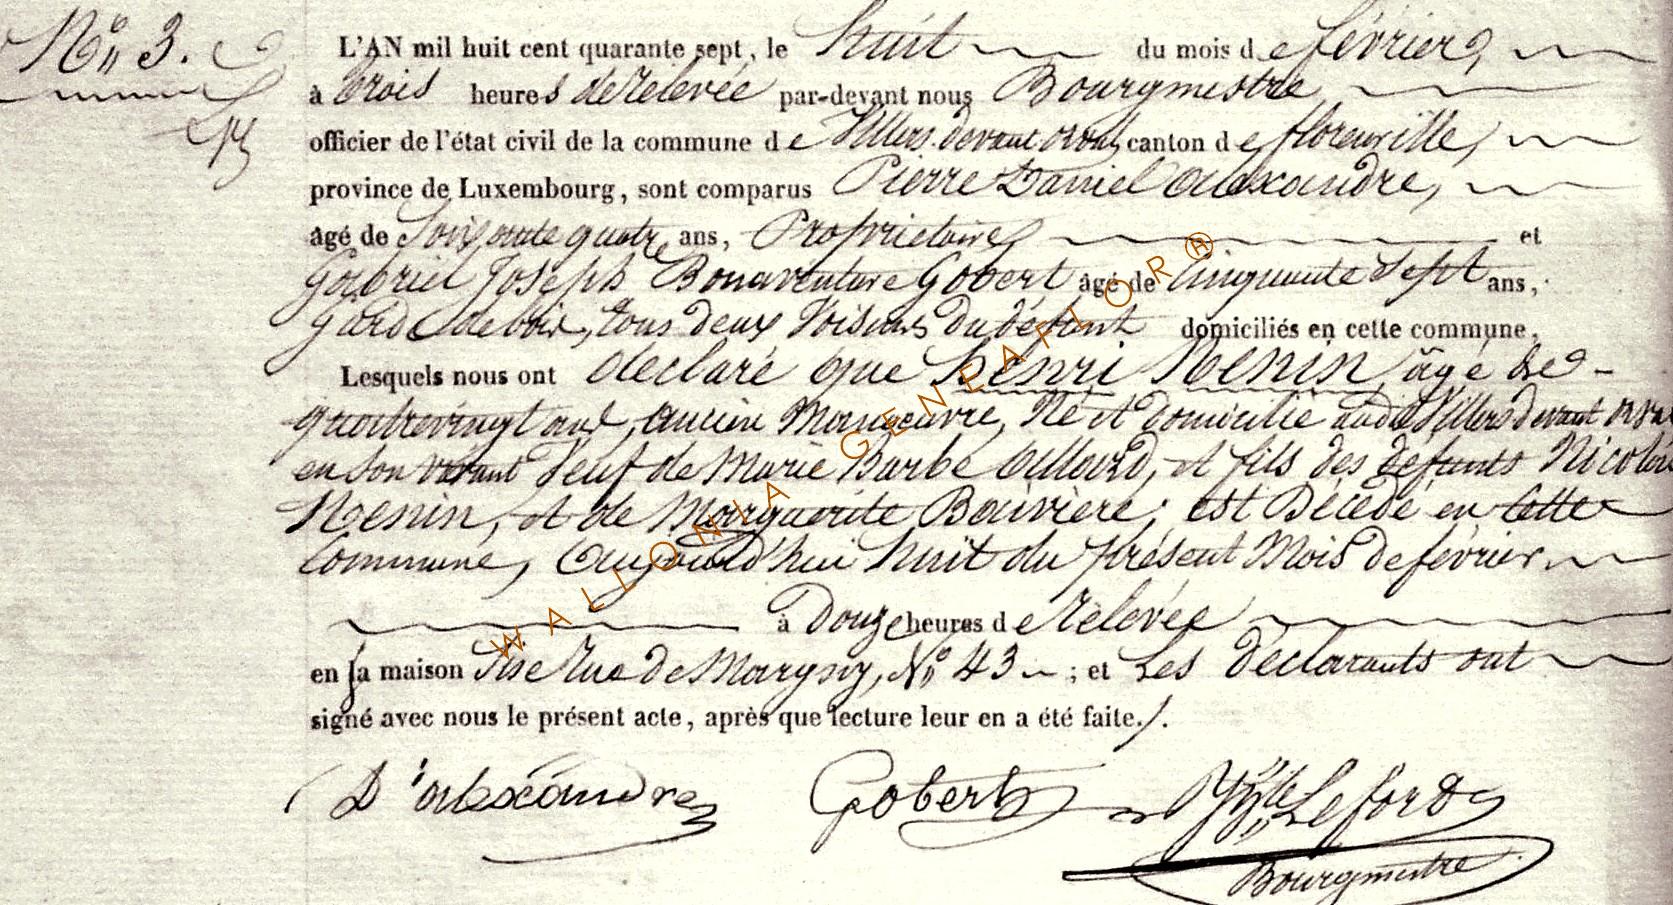 N° 3.
L'AN mil huit cent quarante sept, le huit du mois de février,
à trois heures de relevée par-devant nous Bourgmestre
officier de l'état civil de la commune de Villers devant orval, canton de florenville,
province de Luxembourg, sont comparus Pierre Daniel alexandre,
âgé de Soixante quatre ans, Propriétaire, et
Gabriel Joseph Bonaventure Gobert âgé de Cinquante Sept ans,
garde de bois, tous deux Voisins du défunt domiciliés en cette commune.
Lesquels nous ont déclaré que Henri Nenin, âgé de
quatrevingt ans, ancien Manoeuvre, Né et domicilié audit Villers devant orval
en son vivant Veuf de Marie Barbe Allard, et fils des défunts Nicolas
Nenin, et de Marguerite Bouvière; est Décédé en cette
Commune, aujourd'hui huit du présent Mois de février
à Douze heures de relevée
en sa maison Sise Rue de Margny, N° 43 ; et Les déclarants ont
signé avec nous le présent acte, après que lecture leur en a été faite./.
D alexandre Gobert Leford
Bourgmestre
WALLONIA GENEAFLOR®